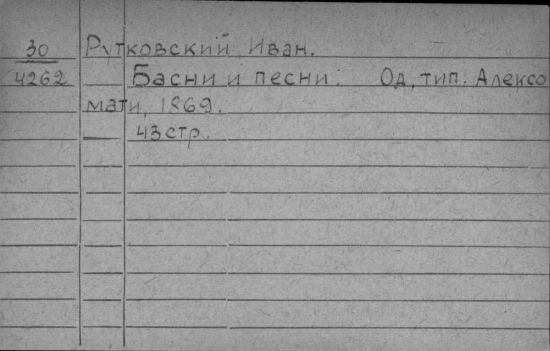 30 Рутковский Иван.
4262 Басни и песни. Од, тип. Алексо
мати, 1869.
43 стр.